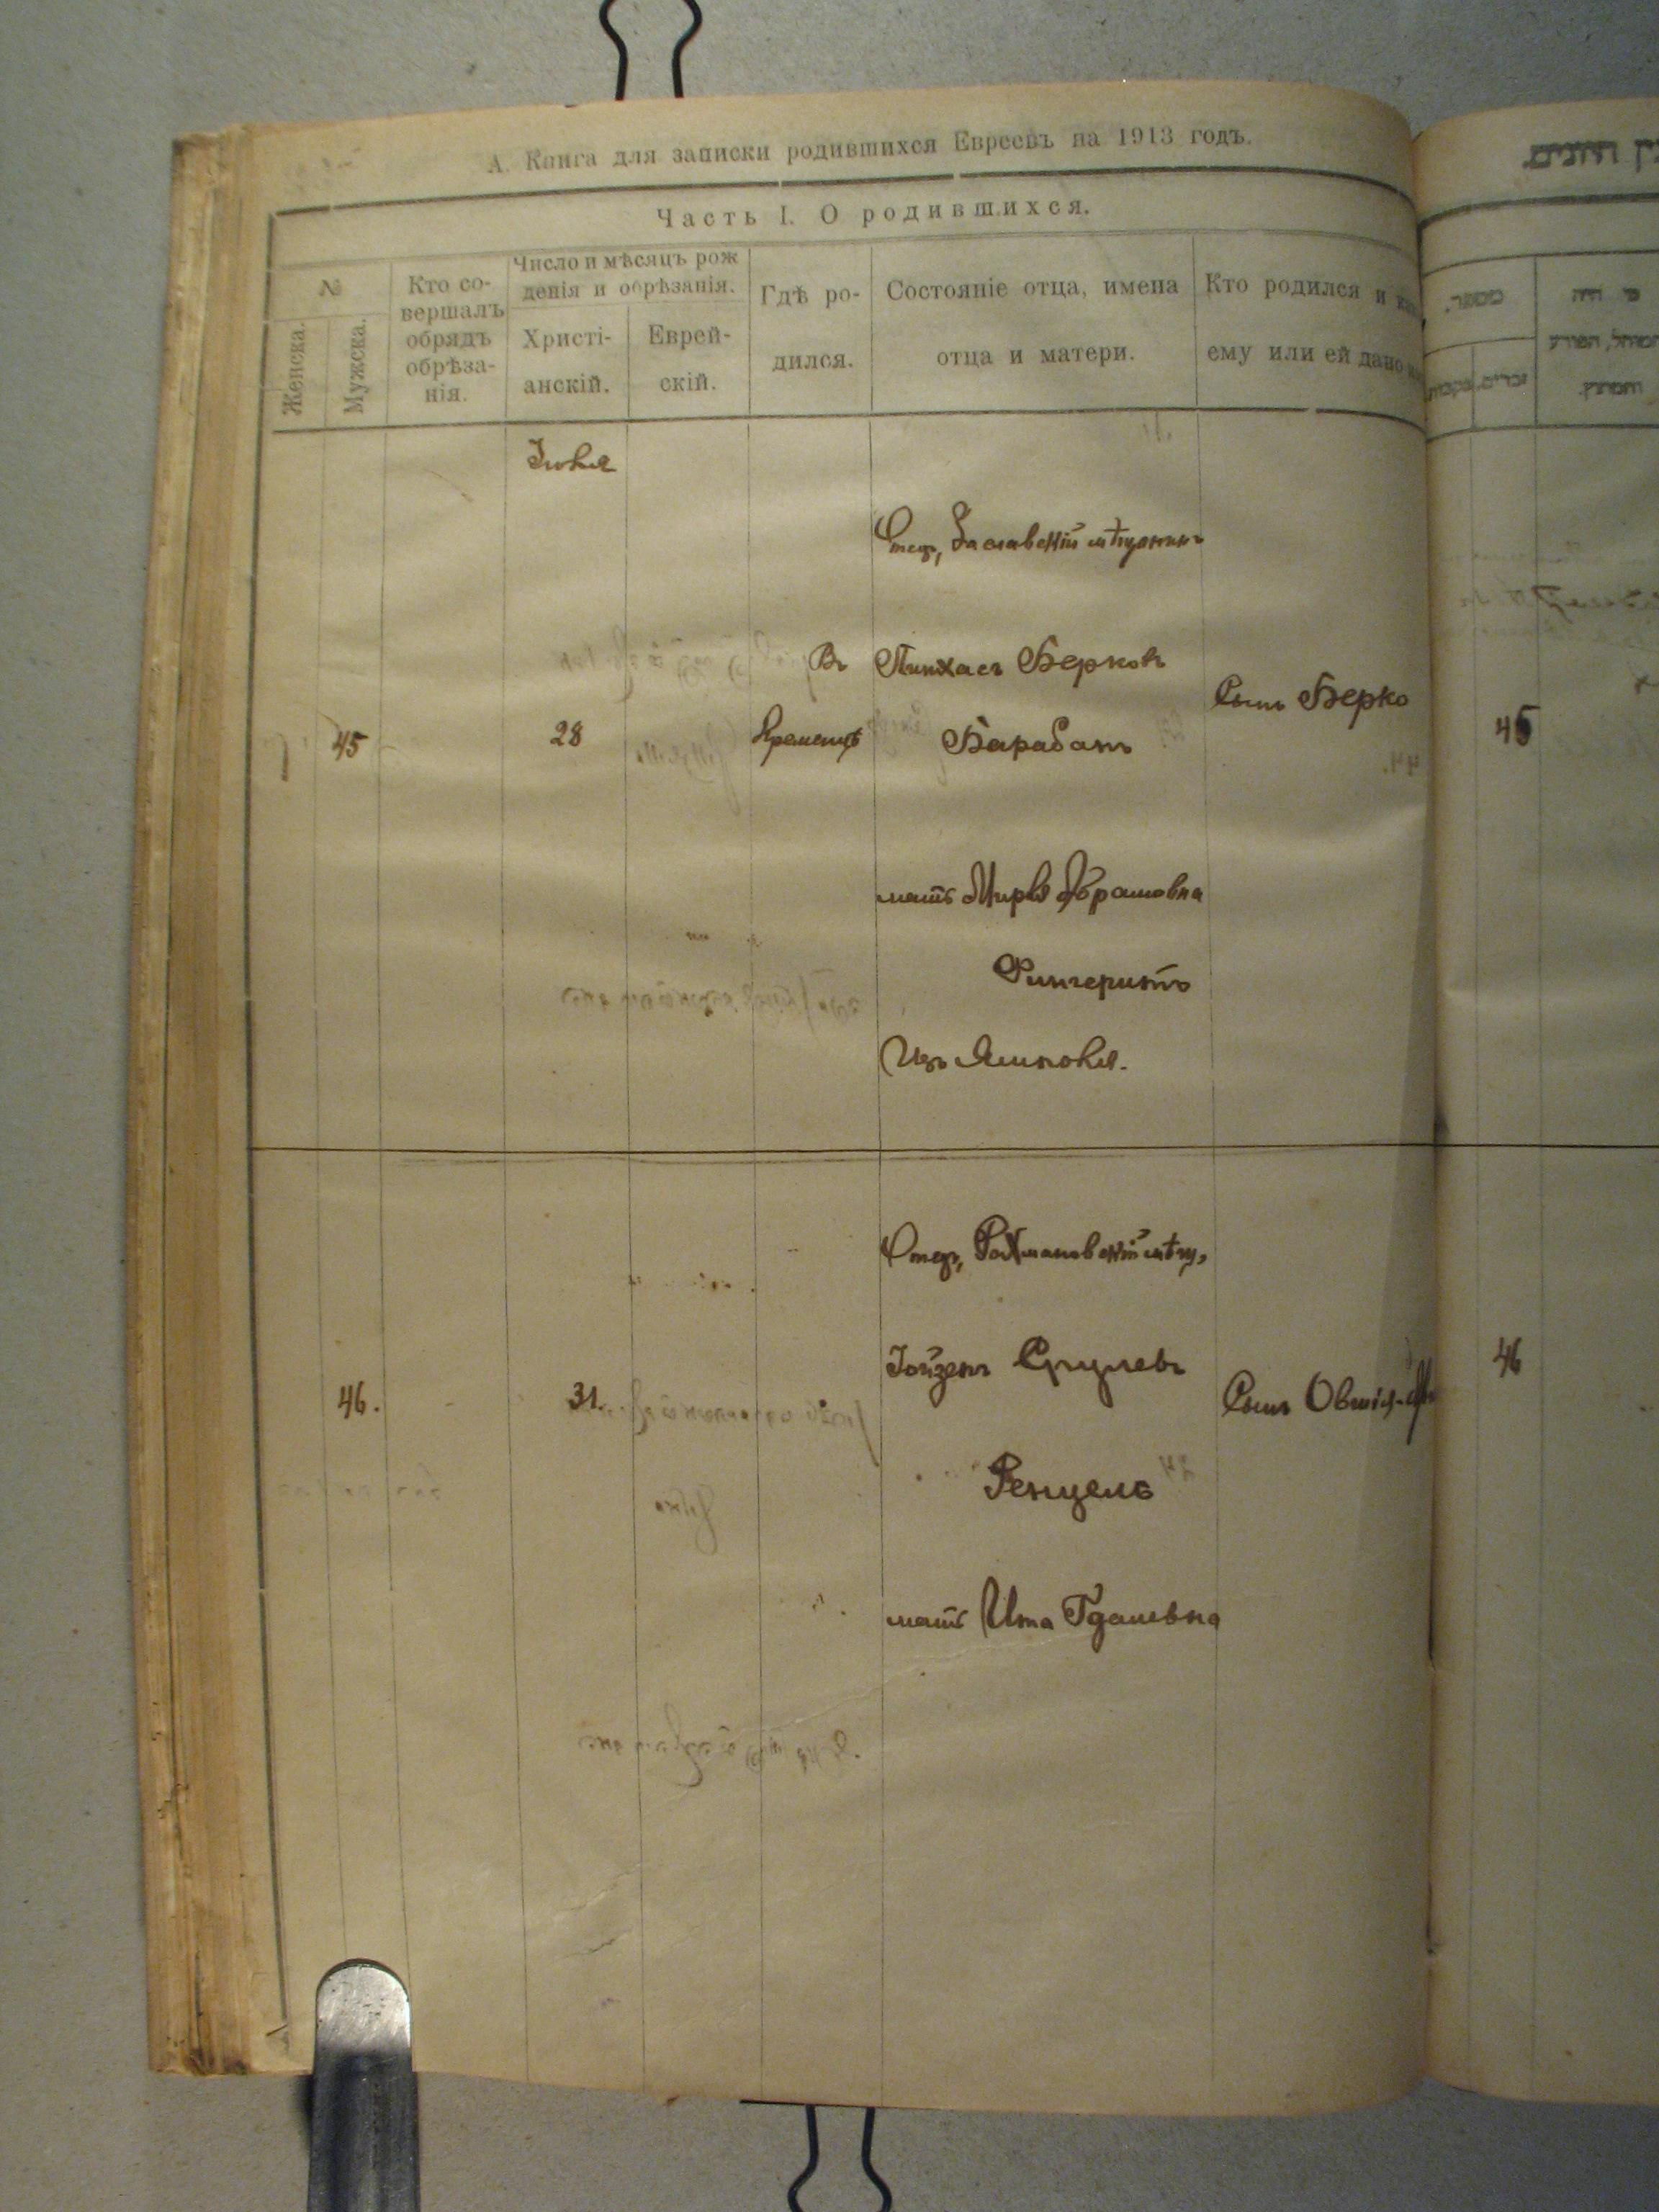 А. Книга для записки родившихся Евреевъ на 1913 годъ.
Часть I. О родившихся.
№
Женска.
Мужска.
Кто со-
вершалъ
обрядъ
обрѣза-
нія.
Число и мѣсяцъ рож
денія и обрѣзанія.
Христі-
анскій.
Еврей-
скій.
Гдѣ ро-
дился.
Состояніе отца, имена
отца и матери.
Кто родился и
ему или ей дано
Іюля
45
28
Въ
Кременцѣ
Отецъ, Заславскій мѣщанинъ
Пинхасъ Берковъ
Барабанъ
мать Мирля Абрамовна
Фингеритъ
Изъ Ямполя.
Сынъ Берко
46.
31.
Отецъ, Рахмановскій мѣщ,
Іойзепъ Срулевъ
Ренцель
мать Ита Гдашевна
Сынъ Овшія-
מספר.
זכרים.
נקבות
מי היה
המוהל, הפורע
והמוצץ.
45
46